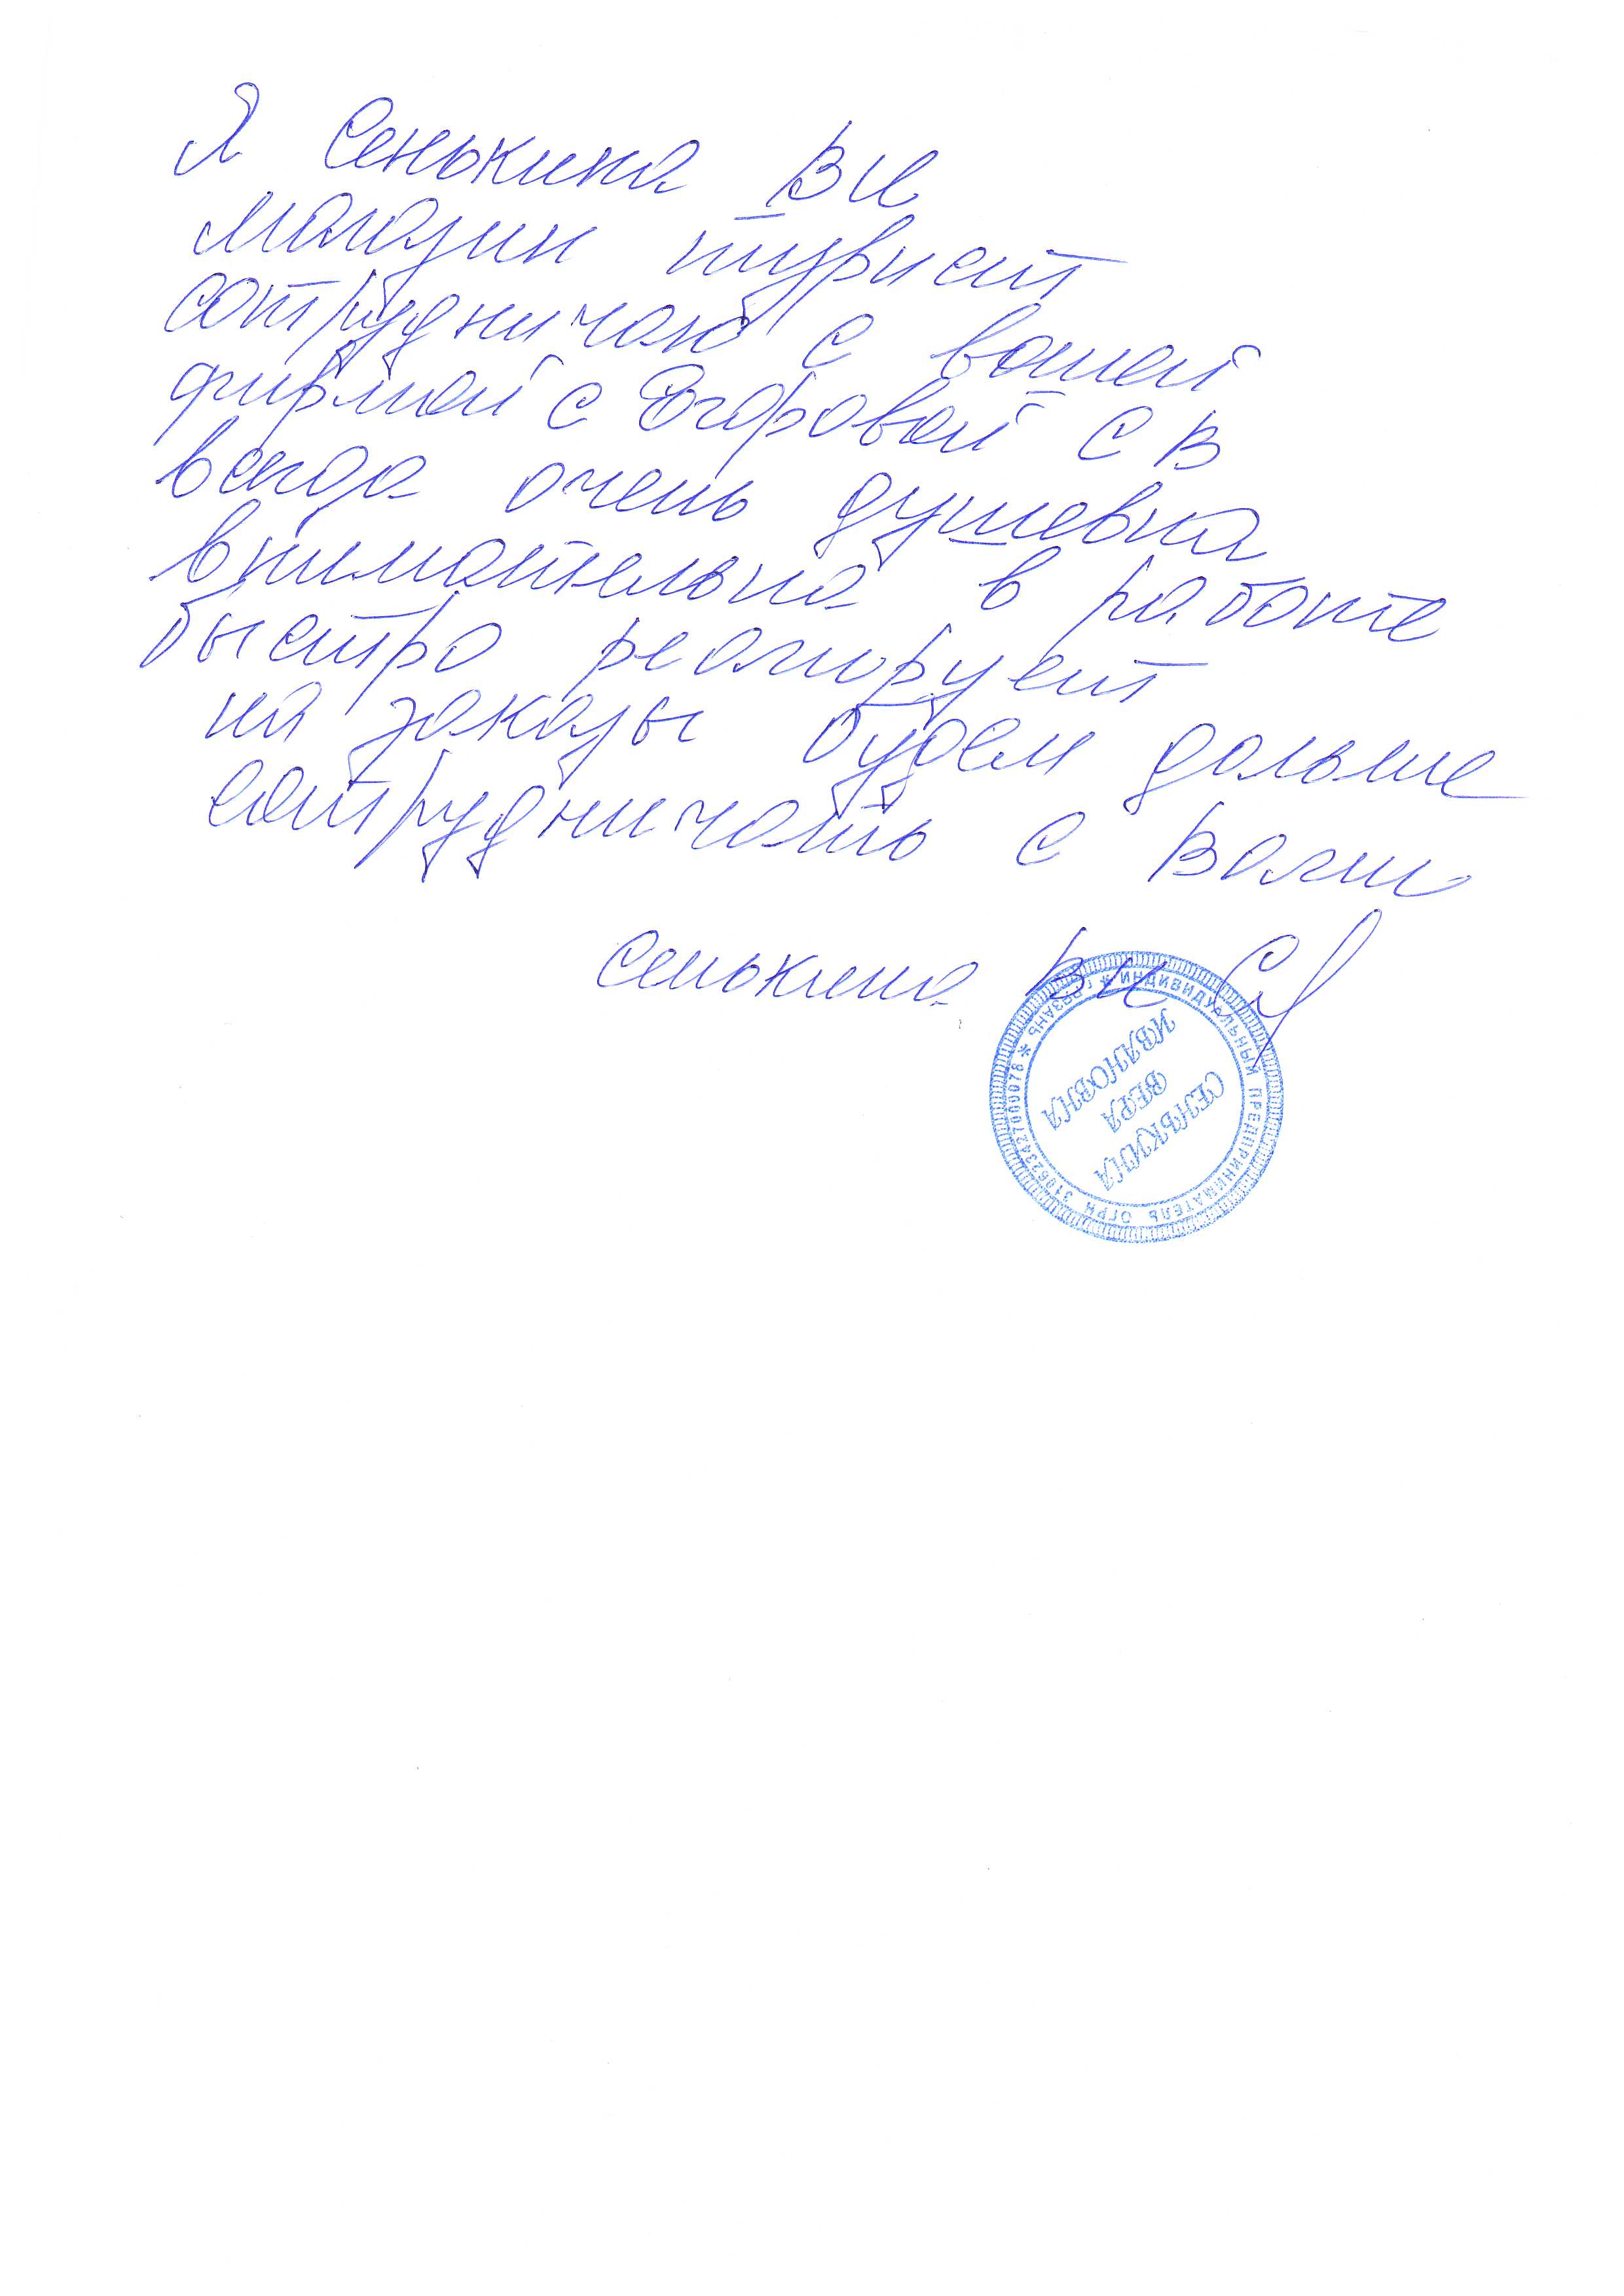 Я Сенькина В И
магазин турист
сотрудничаю с вашей
фирмой с Егоровой С В
всегда очень душевна
внимательна в работе
быстро реагирует
на заказы будем дальше
сотрудничать с Вами
Сенькина В И
* ИНДИВИДУАЛЬНЫЙ ПРЕДПРИНИМАТЕЛЬ ОГРН 310623427000078 * Г. РЯЗАНЬ
СЕНЬКИНА
ВЕРА
ИВАНОВНА